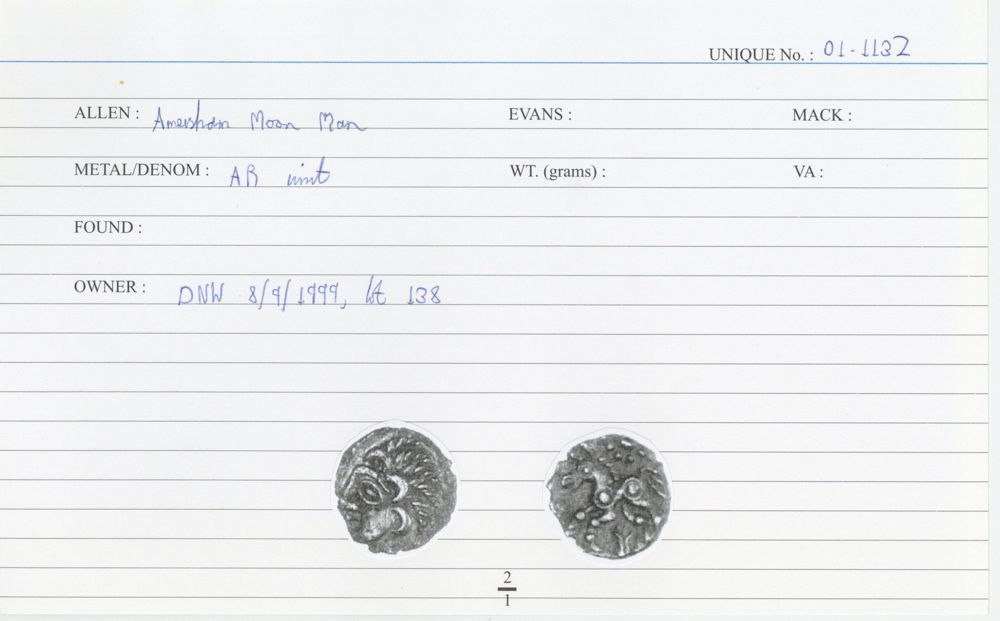 UNIQUE No. : 01-1132
ALLEN : Amersham Moon Man EVANS : MACK :
METAL/DENOM : AR unit WT. (grams) : VA :
FOUND :
OWNER : DNW 8/9/1999, lot 138
2
1